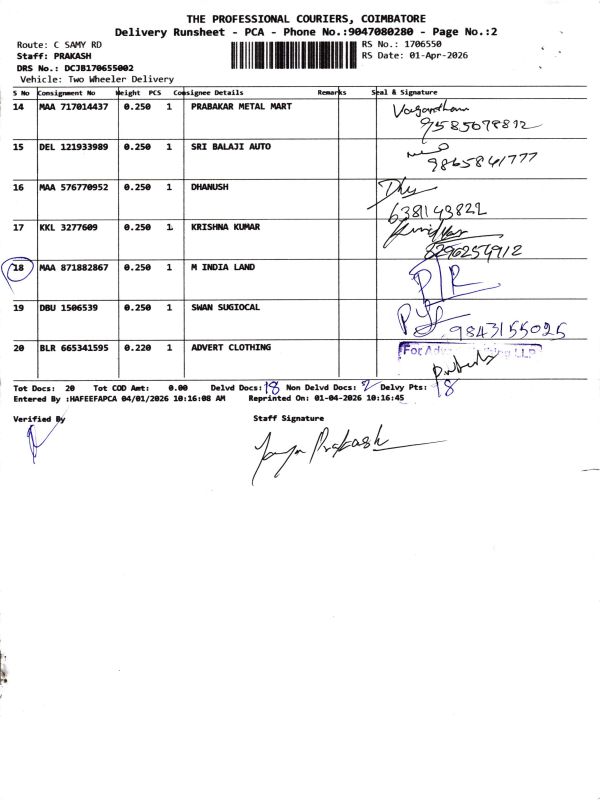 THE PROFESSIONAL COURIERS, COIMBATORE
Delivery Runsheet - PCA - Phone No.:9047080280 - Page No.:2
Route: C SAMY RD
RS No.: 1706550
Staff: PRAKASH
RS Date: 01-Apr-2026
DRS No.: DCJB170655002
Vehicle: Two Wheeler Delivery
S No Consignment No Weight PCS Consignee Details Remarks Seal & Signature
14 MAA 717014437 0.250 1 PRABAKAR METAL MART
9585678812
15 DEL 121933989 0.250 1 SRI BALAJI AUTO
9865841777
16 MAA 576770952 0.250 1 DHANUSH Dhy
6381143822
17 KKL 3277609 0.250 1 KRISHNA KUMAR
8296254912
18 MAA 871882867 0.250 1 M INDIA LAND P/R
19 DBU 1506539 0.250 1 SWAN SUGIOCAL
9843155025
20 BLR 665341595 0.220 1 ADVERT CLOTHING For LLP
Tot Docs: 20 Tot COD Amt: 0.00 Delvd Docs: 18 Non Delvd Docs: 2 Delvy Pts: 18
Entered By :HAFEEFAPCA 04/01/2026 10:16:08 AM Reprinted On: 01-04-2026 10:16:45
Verified By Staff Signature
Prakash